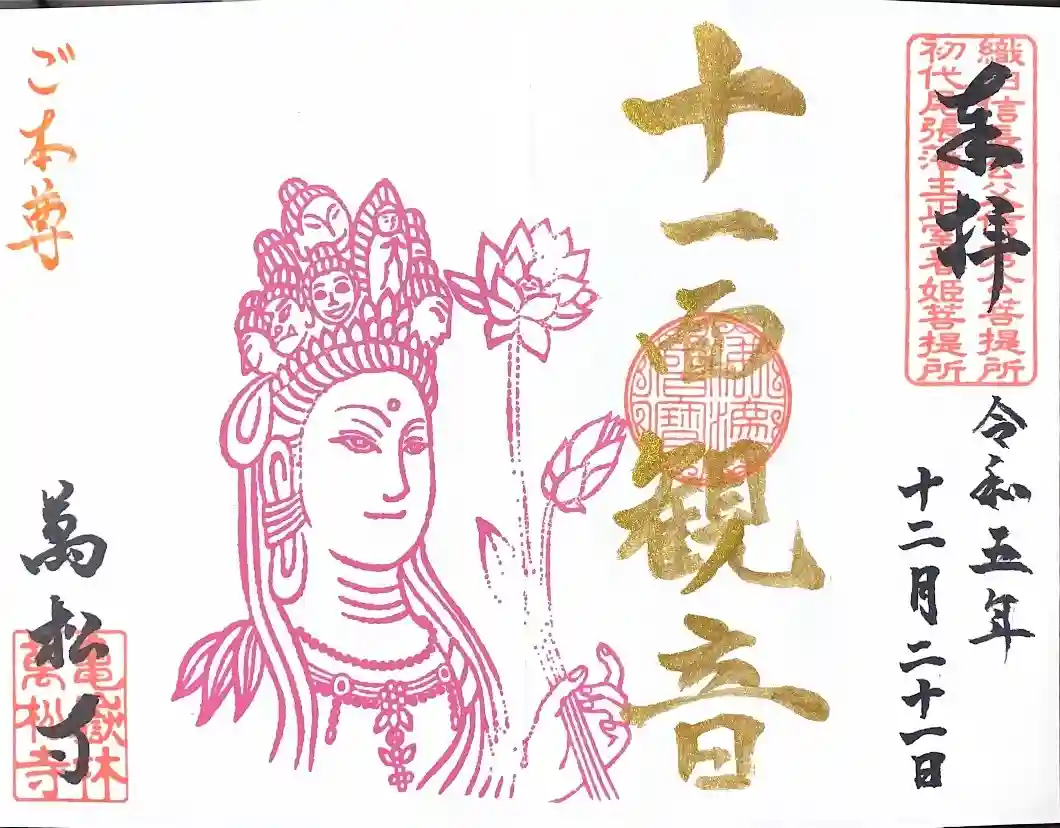 来拝
織田信長公父信秀公菩提所
初代尾張藩主正室春姫菩提所
令和五年
十二月二十一日
十一面観音
ご本尊
萬松寺
亀嶽林
萬松寺